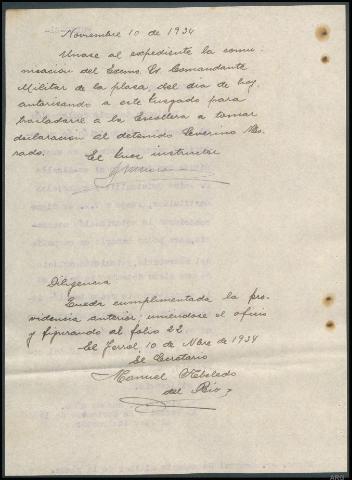 Noviembre 10 de 1934
Unase al expediente la comu-
nicación del Excmo. Sr. Comandante
Militar de la plaza, del dia de hoy,
autorisando a este Juzgado para
trasladarse a la Escollera a tomar
declaración al detenido Severino Bo-
rado.
El Juez instructor
Diligencia
Queda cumplimentada la pro-
videncia anterior, uniendose el oficio
y figurando al folio 22.
El Ferrol, 10 de Nbre de 1934
El Secretario
Manuel Rebolledo
del Rio